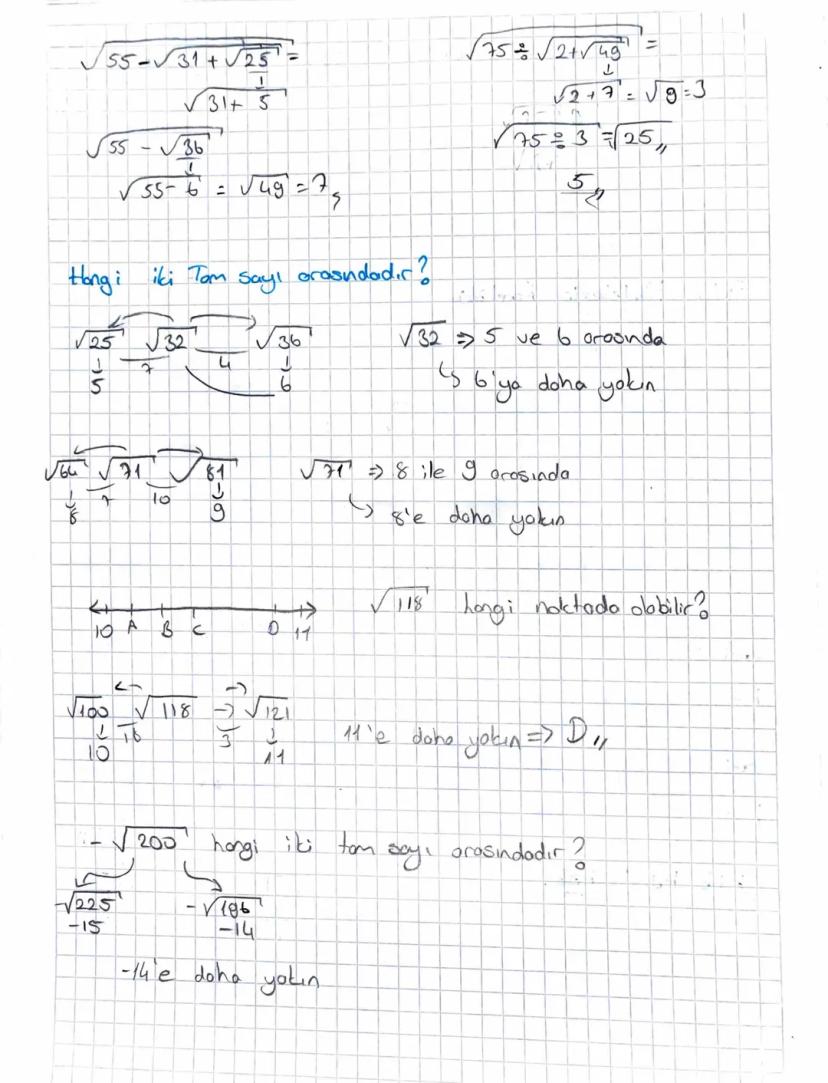 √(55-√(31+√25)) =
√(31+5)
√(55-√36)
√(55-6) = √49 = 7
√(75÷√(2+√49)) =
√(2+7) = √9 = 3
√(75÷3) = √25
5
Hangi iki Tam sayı arasındadır?
√25 √32 √36
7 4
5 6
√32 ⇒ 5 ve 6 arasında
↳ 6'ya doha yakın
√64 √71 √81
7 10
8 9
√71 ⇒ 8 ile 9 arasında
↳ 8'e daha yakın
10 A B C D 11
√118 hangi noktada olabilir?
√100 √118 → √121
18 3
10 11
11'e daha yakın => D
-√200 hangi iki tam sayı arasındadır?
-√225 -√196
-15 -14
-14'e daha yakın